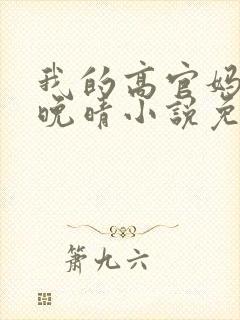 我的高官妈
晚晴小说免
箫九六